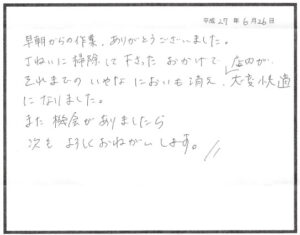 平成27年6月26日
早朝からの作業、ありがとうございました。
ていねいに掃除して下さったおかげで店内が、
それまでのいやなにおいも消え、大変快適
になりました。
また機会がありましたら
次もよろしくおねがいします。